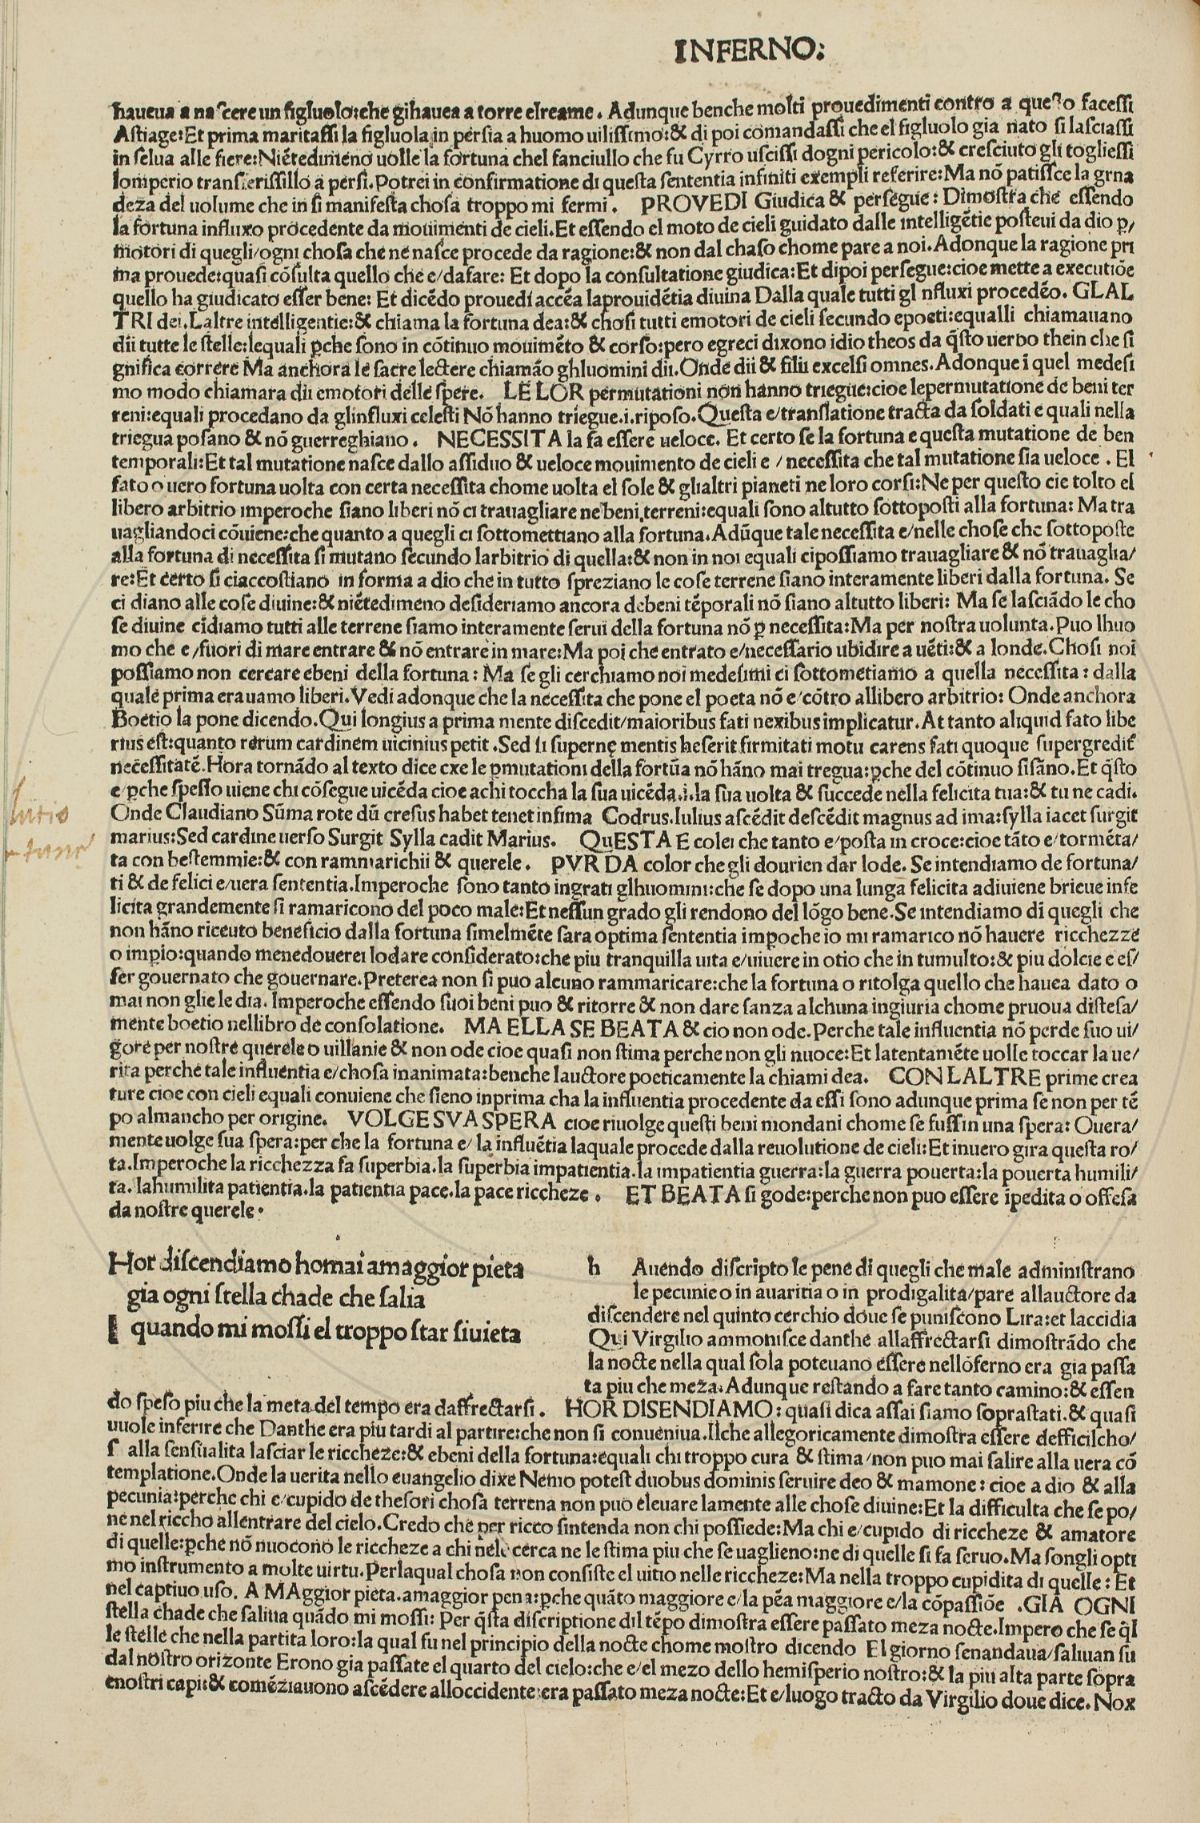 INFERNO:
haueua a nascere un figluolo:che gihauea a torre elreame. Adunque benche molti prouedimenti contro a questo facessi
Astiage:Et prima maritassi la figluola in persia a huomo uilissimo:& di poi comandassi che el figluolo gia nato si lasciassi
in selua alle fiere:Niẽtedimeno uolle la fortuna chel fanciullo che fu Cyrro uscissi dogni pericolo:& cresciuto gli togliessi
lomperio transferissillo a persi.Potrei in confirmatione di questa sententia infiniti exempli referire:Ma nõ patissce la grna
deza del uolume che in si manifesta chosa troppo mi fermi. PROVEDI Giudica & persegue: Dimostra che essendo
la fortuna influxo procedente da mouimenti de cieli.Et essendo el moto de cieli guidato dalle intelligẽtie posteui da dio p/
motori di quegli/ogni chosa che ne nasce procede da ragione:& non dal chaso chome pare a noi.Adonque la ragione pri
ma prouede:quasi cõsulta quello che e/dafare: Et dopo la consultatione giudica:Et dipoi persegue:cioe mette a executiõe
quello ha giudicato esser bene: Et dicẽdo prouedi accẽa laprouidẽtia diuina Dalla quale tutti gl nfluxi procedẽo. GLAL
TRI dei.Laltre intelligentie:& chiama la fortuna dea:& chosi tutti emotori de cieli secundo epoeti:equalli chiamauano
dii tutte le stelle:lequali ꝑche sono in cõtinuo mouimẽto & corso:pero egreci dixono idio theos da q̃sto uerbo thein che si
gnifica correre Ma anchora le sacre lectere chiamão ghluomini dii.Onde dii & filii excelsi omnes.Adonque ĩ quel medesi
mo modo chiamara dii emotori delle spere. LE LOR permutationi non hanno triegue:cioe lepermutatione de beni ter
reni:equali procedano da glinfluxi celesti Nõ hanno triegue.i.riposo.Questa e/translatione tracta da soldati e quali nella
triegua posano & nõ guerreghiano. NECESSITA la fa essere ueloce. Et certo se la fortuna e questa mutatione de ben
temporali:Et tal mutatione nasce dallo assiduo & ueloce mouimento de cieli e / necessita che tal mutatione sia ueloce . El
fato o uero fortuna uolta con certa necessita chome uolta el sole & glialtri pianeti ne loro corsi:Ne per questo cie tolto el
libero arbitrio imperoche siano liberi nõ ci trauagliare ne'beni terreni:equali sono altutto sottoposti alla fortuna: Ma tra
uagliandoci cõuiene:che quanto a quegli ci sottomettiano alla fortuna.Adũque tale necessita e/nelle chose che sottoposte
alla fortuna di necessita si mutano secundo larbitrio di quella:& non in noi equali cipossiamo trauagliare & nõ trauaglia/
re:Et certo si ciaccostiano in forma a dio che in tutto spreziano le cose terrene siano interamente liberi dalla fortuna. Se
ci diano alle cose diuine:& niẽtedimeno desideriamo ancora debeni tẽporali nõ siano altutto liberi: Ma se lasciãdo le cho
se diuine cidiamo tutti alle terrene siamo interamente serui della fortuna nõ ꝑ necessita:Ma per nostra uolunta.Puo lhuo
mo che e/fuori di mare entrare & nõ entrare in mare:Ma poi che entrato e/necessario ubidire a uẽti:& a londe.Chosi noi
possiamo non cercare ebeni della fortuna: Ma se gli cerchiamo noi medesimi ci sottometiamo a quella necessita: dalla
quale prima erauamo liberi.Vedi adonque che la necessita che pone el poeta nõ e/cõtro allibero arbitrio: Onde anchora
Boetio la pone dicendo.Qui longius a prima mente discedit/maioribus fati nexibus implicatur.At tanto aliquid fato libe
rius est:quanto rerum cardinem uicinius petit.Sed si supernę mentis heserit firmitati motu carens fati quoque supergredit̃
necẽssitatẽ.Hora tornãdo al texto dice cxe le ꝑmutationi della fortũa nõ hãno mai tregua:ꝑche del cõtinuo sisãno.Et q̃sto
e/ꝑche spesso uiene chi cõsegue uicẽda cioe achi toccha la sua uicẽda.i.la sua uolta & succede nella felicita tua:& tu ne cadi.
Onde Claudiano Sũma rote dũ cresus habet tenet infima Codrus.Iulius ascẽdit descẽdit magnus ad ima:sylla iacet surgit
marius:Sed cardine uerso Surgit Sylla cadit Marius. QuESTA E colei che tanto e/posta in croce:cioe tãto e/tormẽta/
ta con bestemmie:& con rammarichii & querele. PVR DA color che gli dourien dar lode. Se intendiamo de fortuna/
ti & de felici e/uera sententia.Imperoche sono tanto ingrati glhuomini:che se dopo una lunga felicita adiuiene brieue infe
licita grandemente si ramaricono del poco male:Et nessun grado gli rendono del lõgo bene.Se intendiamo di quegli che
non hãno riceuto beneficio dalla fortuna simelmẽte sara optima sententia impoche io mi ramarico nõ hauere ricchezze
o impio:quando menedouerei lodare considerato:che piu tranquilla uita e/uiuere in otio che in tumulto:& piu dolcie e es/
ser gouernato che gouernare.Preterea non si puo alcuno rammaricare:che la fortuna o ritolga quello che hauea dato o
mai non glie le dia. Imperoche essendo suoi beni puo & ritorre & non dare sanza alchuna ingiuria chome pruoua distesa/
mente boetio nellibro de consolatione. MA ELLA SE BEATA & cio non ode.Perche tale influentia nõ perde suo ui/
gore per nostre querele o uillanie & non ode cioe quasi non stima perche non gli nuoce:Et latentamẽte uolle toccar la ue/
rita perche tale influentia e/chosa inanimata:benche lauctore poeticamente la chiami dea. CON LALTRE prime crea
ture cioe con cieli equali conuiene che sieno inprima cha la influentia procedente da essi sono adunque prima se non per tẽ
po almancho per origine. VOLGE SVA SPERA cioe riuolge questi beni mondani chome se fussin una spera: Ouera/
mente uolge sua spera:per che la fortuna e/ la influẽtia laquale procede dalla reuolutione de cieli:Et inuero gira questa ro/
ta.Imperoche la ricchezza fa superbia.la superbia impatientia.la impatientia guerra:la guerra pouerta:la pouerta humili/
ta. lahumilita patientia.la patientia pace.la pace riccheze. ET BEATA si gode:perche non puo essere ĩpedita o offesa
da nostre querele.
Hor discendiamo homai amaggior pieta
gia ogni stella chade che salia
quando mi mossi el troppo star siuieta
h Auendo discripto le pene di quegli che male administrano
le pecunie o in auaritia o in prodigalita/pare allauctore da
discendere nel quinto cerchio doue se puniscono Lira:et laccidia
Qui Virgilio ammonisce danthe allaffrectarsi dimostrãdo che
la nocte nella qual sola poteuano essere nellõferno era gia passa
ta piu che meza.Adunque restando a fare tanto camino:& essen
do speso piu che la meta del tempo era daffrectarsi. HOR DISENDIAMO: quasi dica assai siamo soprastati.& quasi
uuole inferire che Danthe era piu tardi al partire:che non si conueniua.Ilche allegoricamente dimostra essere defficilcho/
s alla sensualita lasciar le riccheze:& ebeni della fortuna:equali chi troppo cura & stima/non puo mai salire alla uera cõ
templatione.Onde la uerita nello euangelio dixe Nemo potest duobus dominis seruire deo & mamone: cioe a dio & alla
pecunia:perche chi e/cupido de thesori chosa terrena non puo eleuare lamente alle chose diuine:Et la difficulta che se po/
ne nel riccho allentrare del cielo.Credo che per ricco sintenda non chi possiede:Ma chi e/cupido di riccheze & amatore
di quelle:ꝑche nõ nuocono le riccheze a chi nele cerca ne le stima piu che se uaglieno:ne di quelle si fa seruo.Ma songli opti
mo instrumento a molte uirtu.Perlaqual chosa non consiste el uitio nelle riccheze:Ma nella troppo cupidita di quelle: Et
nel captiuo uso. A MAggior pieta.amaggior pena:ꝑche quãto maggiore e/la pẽa maggiore e/la cõpassiõe .GIA OGNI
stella chade che saliua quãdo mi mossi: Per q̃sta discriptione dil tẽpo dimostra essere passato meza nocte.Impero che se q̃l
le stelle che nella partita loro:la qual fu nel principio della nocte chome mostro dicendo El giorno senandaua/saliuan su
dal nostro orizonte Erono gia passate el quarto del cielo:che e/el mezo dello hemisperio nostro:& la piu alta parte sopra
enostri capi:& comẽziauono ascẽdere alloccidente:era passato meza nocte:Et e/luogo tracto da Virgilio doue dice.Nox